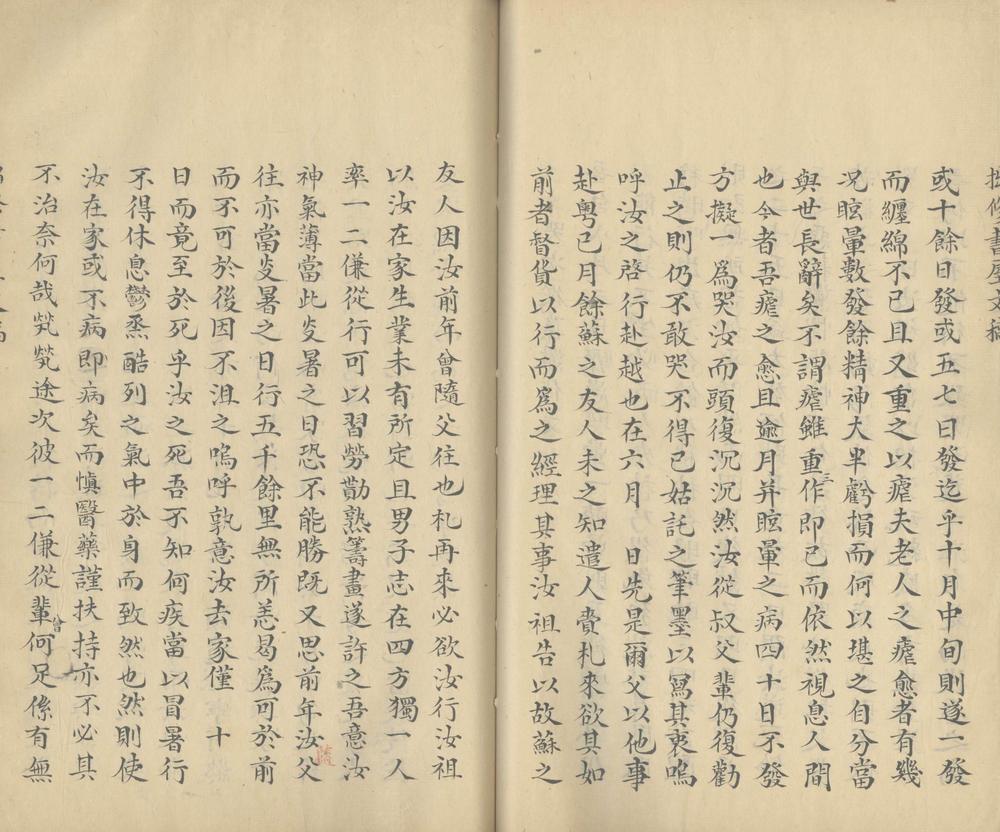 或十餘日發或五七日發迄乎十月中旬則遂一發
而纏綿不已且又重之以瘧夫老人之瘧愈者有幾
况眩暈數發餘精神大半虧損而何以堪之自分當
與世長辭矣不謂瘧雖重三作即已而依然視息人間
也今者吾瘧之愈且逾月并眩暈之病四十日不發
方擬一為哭汝而頭復沉沉然汝從叔父輩仍復勸
止之則仍不敢哭不得已姑託之筆墨以寫其衷嗚
呼汝之啓行赴越也在六月 日先是爾父以他事
赴粤已月餘蘇之友人未之知遣人賫札來欲其如
前者督貨以行而為之經理其事汝祖告以故蘇之
友人因汝前年曾隨父往也札再來必欲汝行汝祖
以汝在家生業未有所定且男子志在四方獨一人
率一二傔從行可以習勞勩熟籌畫遂許之吾意汝
神氣薄當此炎暑之日恐不能勝既又思前年汝隨父
往亦當炎暑之日行五千餘里無所恙曷為可於前
而不可於後因不沮之嗚呼孰意汝去家僅 十
日而竟至於死乎汝之死吾不知何疾當以冒暑行
不得休息鬱烝酷列之氣中於身而致然也然則使
汝在家或不病即病矣而慎醫藥謹扶持亦不必其
不治奈何哉煢煢途次彼一二傔從輩曾何足係有無